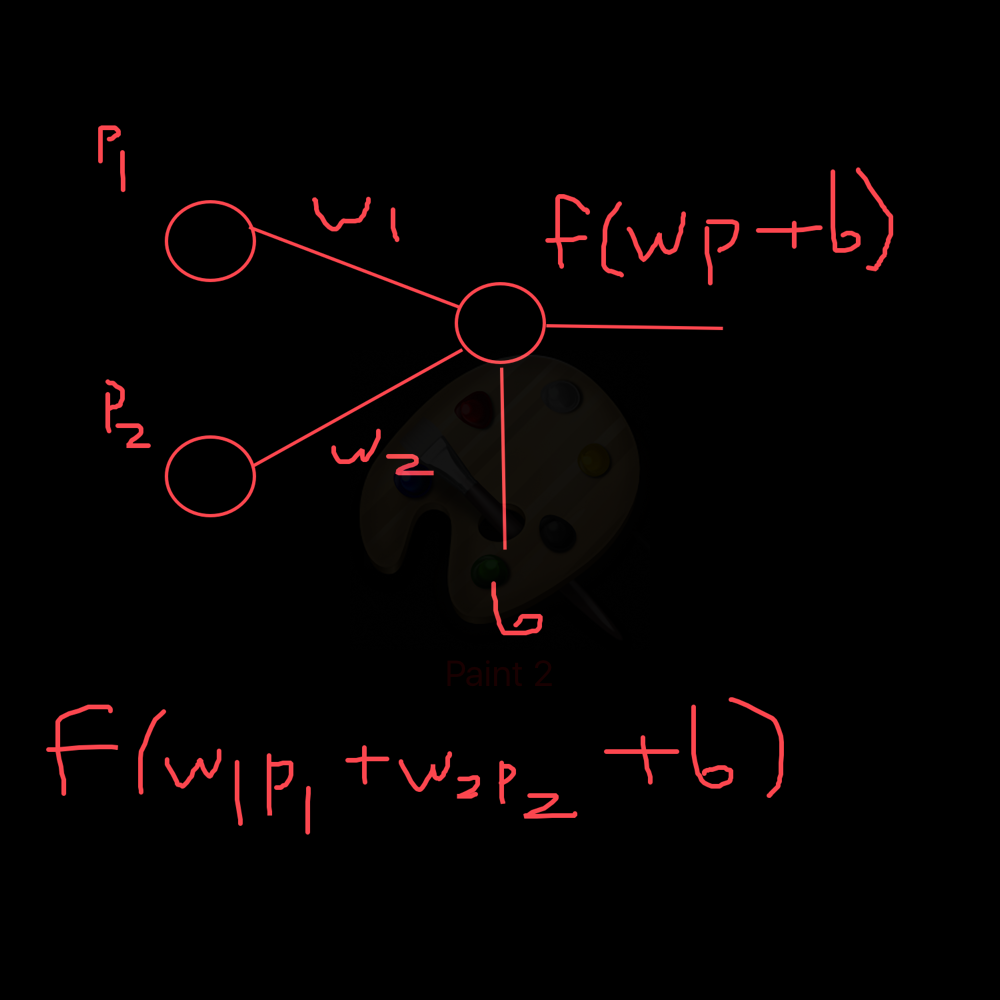 P1
w1
f(wp+b)
P2
w2
b
Paint 2
F(w1p1+w2p2+b)